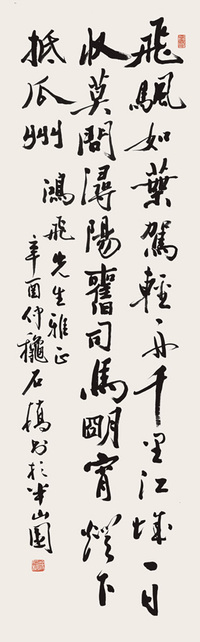 飛颿如葉駕輕舟千里江城一日
收莫問潯陽舊司馬朙宵燈下
抵瓜州
鴻飛先生雅正
辛酉仲龝石橋書於半山園